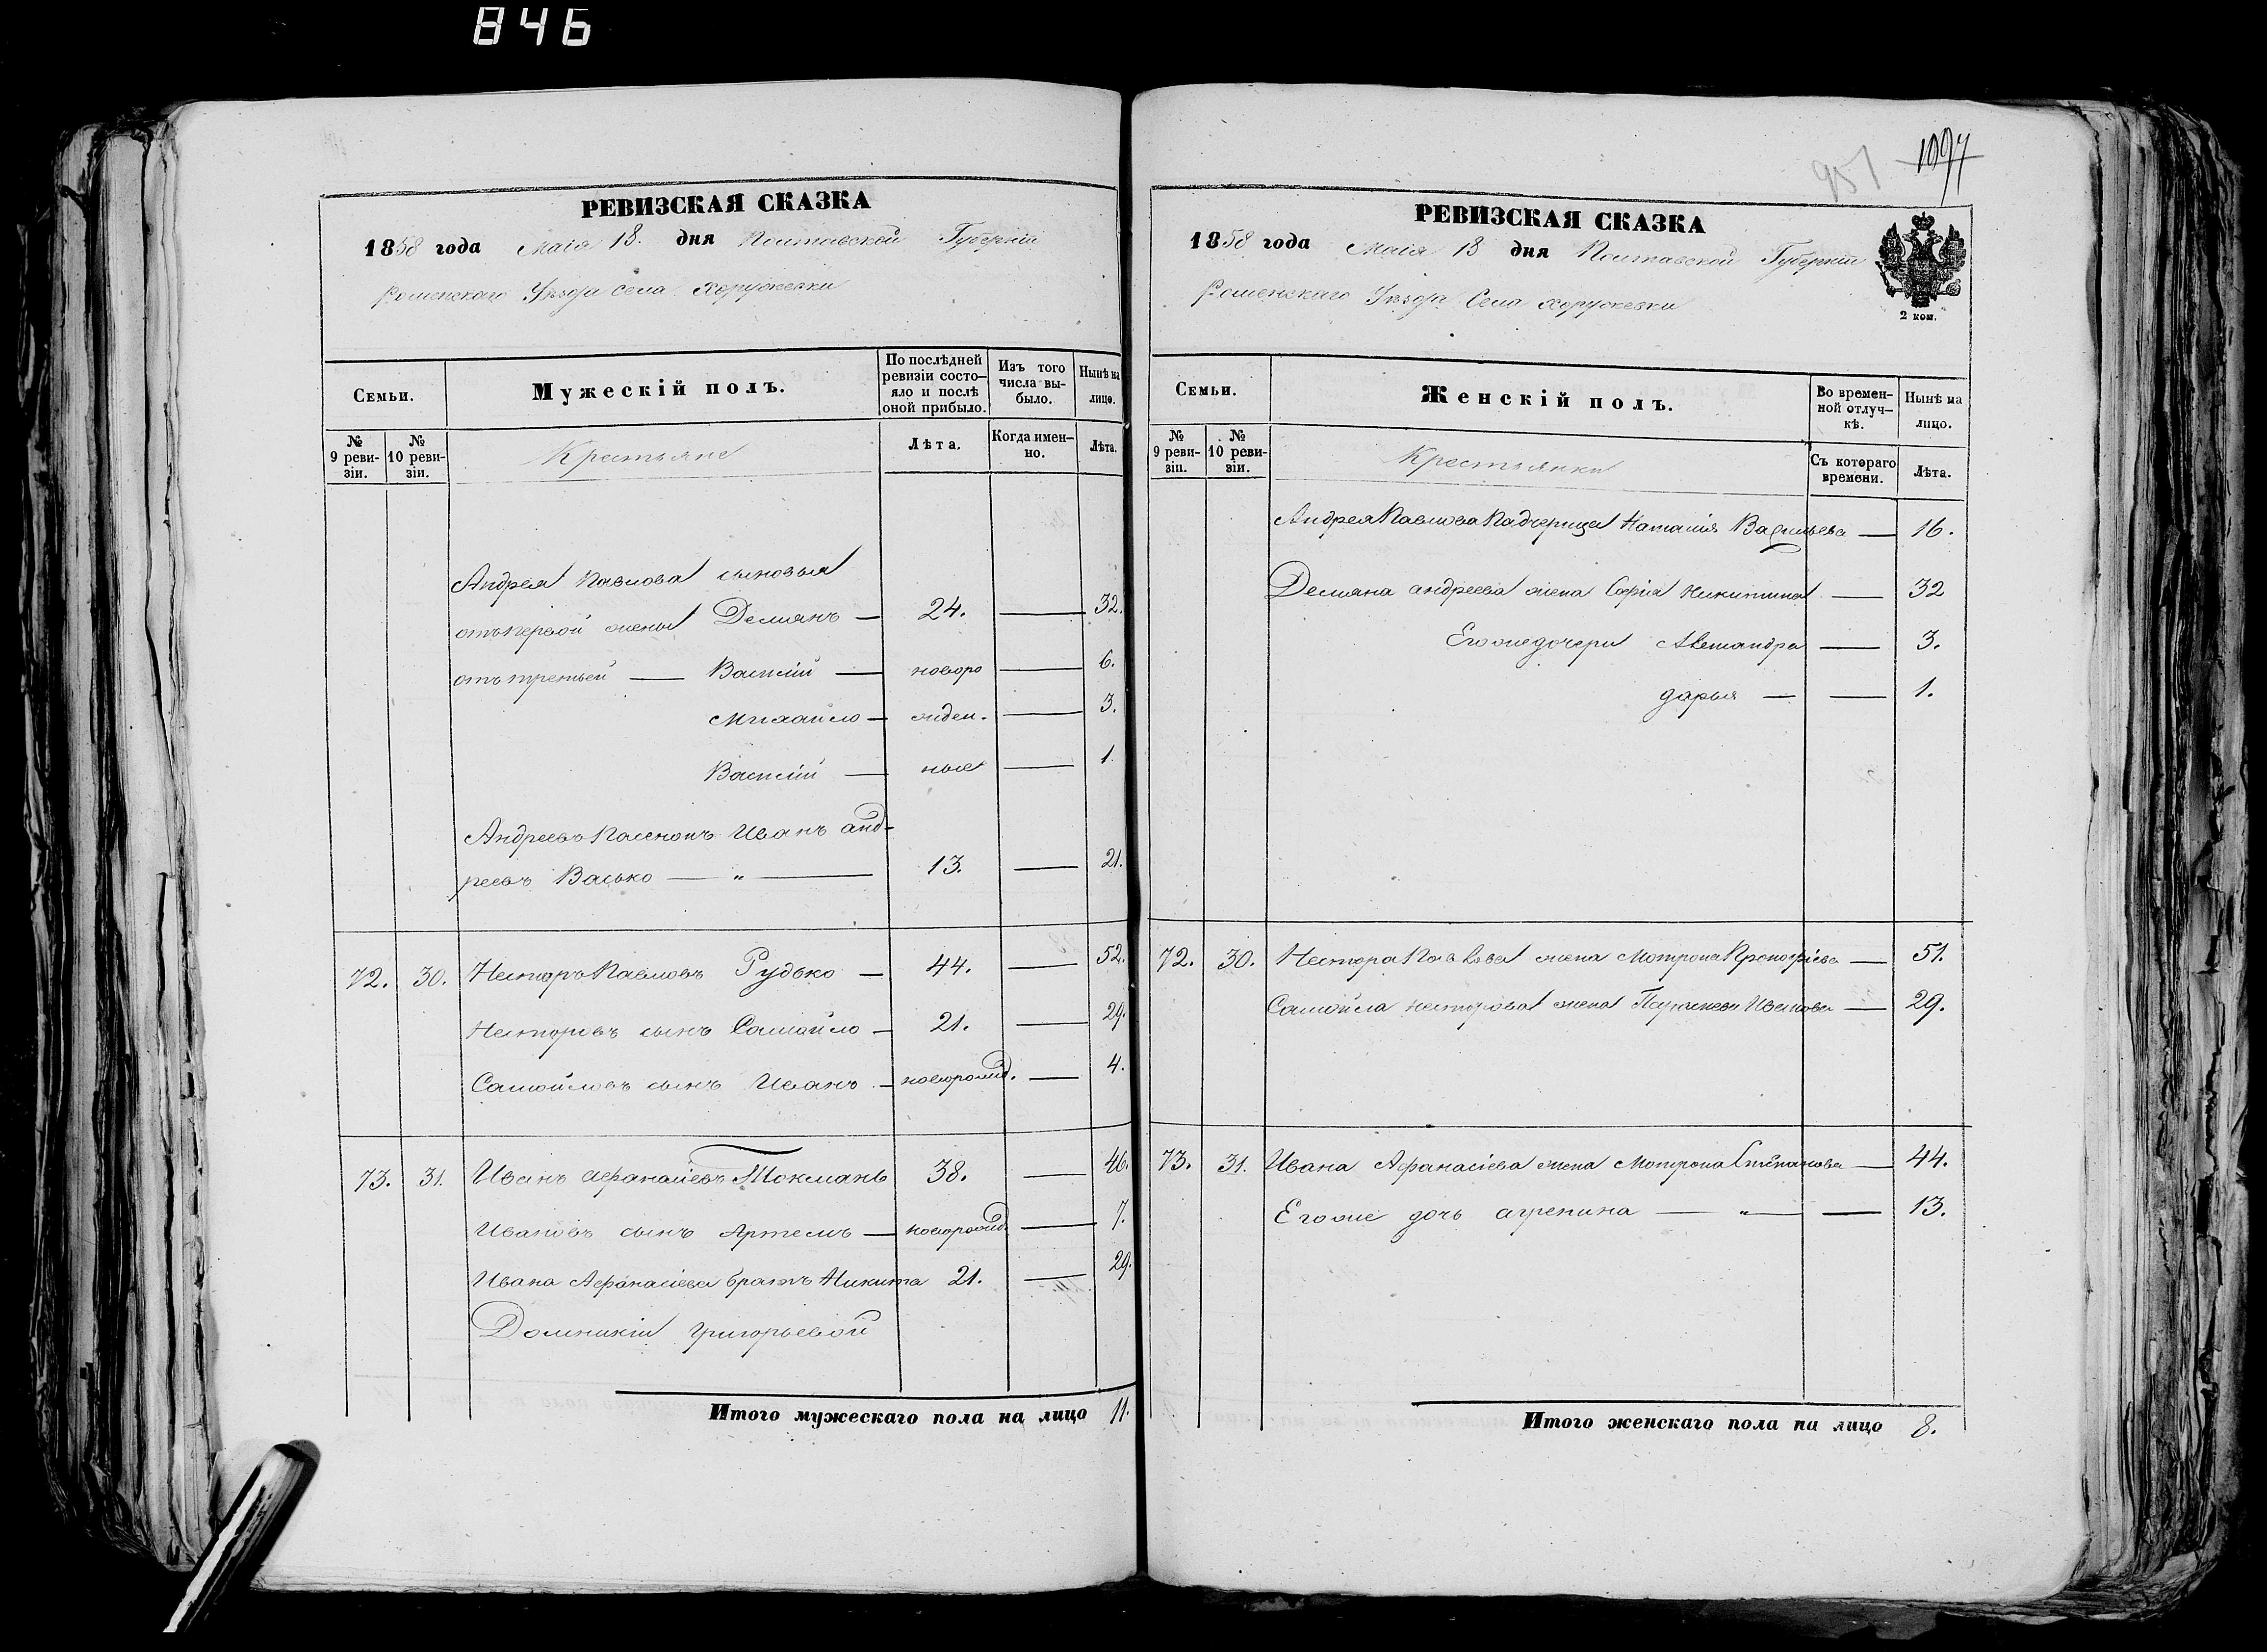 846
РЕВИЗСКАЯ СКАЗКА
1858 года Маія 18. дня Полтавской Губерніи
Роменскаго Уѣзда Села Хоружевки
Семьи.
Мужескій полъ.
По послѣдней ревизіи состо-
яло и послѣ оной прибыло.
Изъ того числа вы-
было.
Нынѣ на лицо.
№ 9 реви-
зіи.
№ 10 реви-
зіи.
Крестьяне
Лѣта.
Когда имен-
но.
Лѣта.
Андрея Павлова сыновья
отъ первой жены Демянъ — 24. — 32.
отъ третьей — Василій — новоро — 6.
Михайло — жден. — 3.
Василій — ные — 1.
Андреевъ Пасенокъ Иванъ анд-
реевъ Васько — „ — 13. — 21.
72. 30. Несторъ Павловъ Рудько — 44. — 52.
Несторовъ сынъ Самойло — 21. — 29.
Самойловъ сынъ Иванъ — новорожд. — 4.
73. 31. Иванъ Афанасіевъ Токмань 38. — 46.
Ивановъ сынъ Артемъ — новорожд. — 7.
Ивана Афанасіева братъ Никита 21. — 29.
Домникіи григорьевой
Итого мужескаго пола на лицо 11.
951 1097
РЕВИЗСКАЯ СКАЗКА
1858 года Маія 18 дня Полтавской Губерніи
Роменскаго Уѣзда Села Хоружевки
2 коп.
Семьи.
Женскій полъ.
Во времен-
ной отлуч-
кѣ.
Нынѣ на лицо.
№ 9 реви-
зіи.
№ 10 реви-
зіи.
Крестьянки
Съ котораго времени.
Лѣта.
Андрея Павлова Падчерица Наталія Васильева — 16.
Демяна андреева жена Софія Никитина — 32
Его же дочери Александра — 3.
дарья — — 1.
72. 30. Нестера Павлова жена Мотрона Прокофіева — 51.
Самойла несторова жена Иванова — 29.
73. 31. Ивана Афанасіева жена Мотрона Степанова — 44.
Его же дочь агрепина — „ — — 13.
Итого женскаго пола на лицо 8.